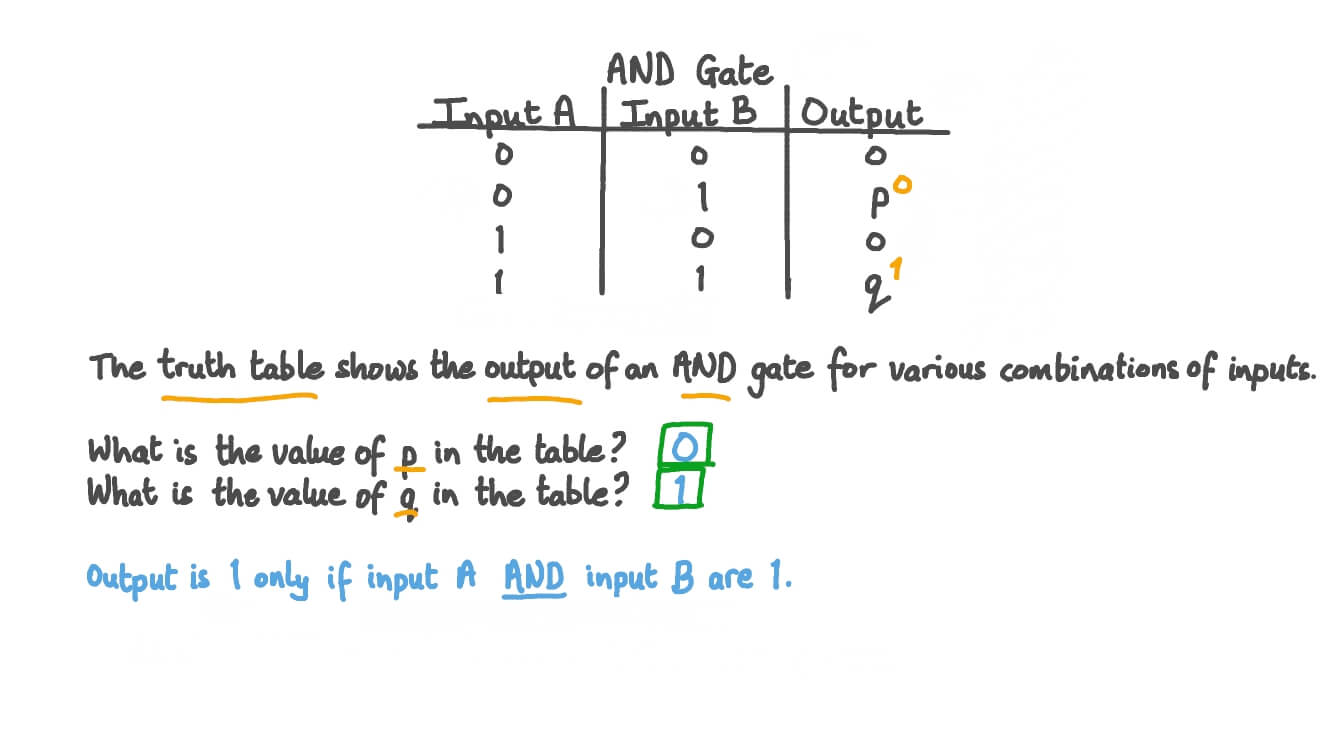 AND Gate
Input A Input B Output
0 0 0
0 1 p 0
1 0 0
1 1 q 1
The truth table shows the output of an AND gate for various combinations of inputs.
What is the value of p in the table? 0
What is the value of q in the table? 1
Output is 1 only if input A AND input B are 1.